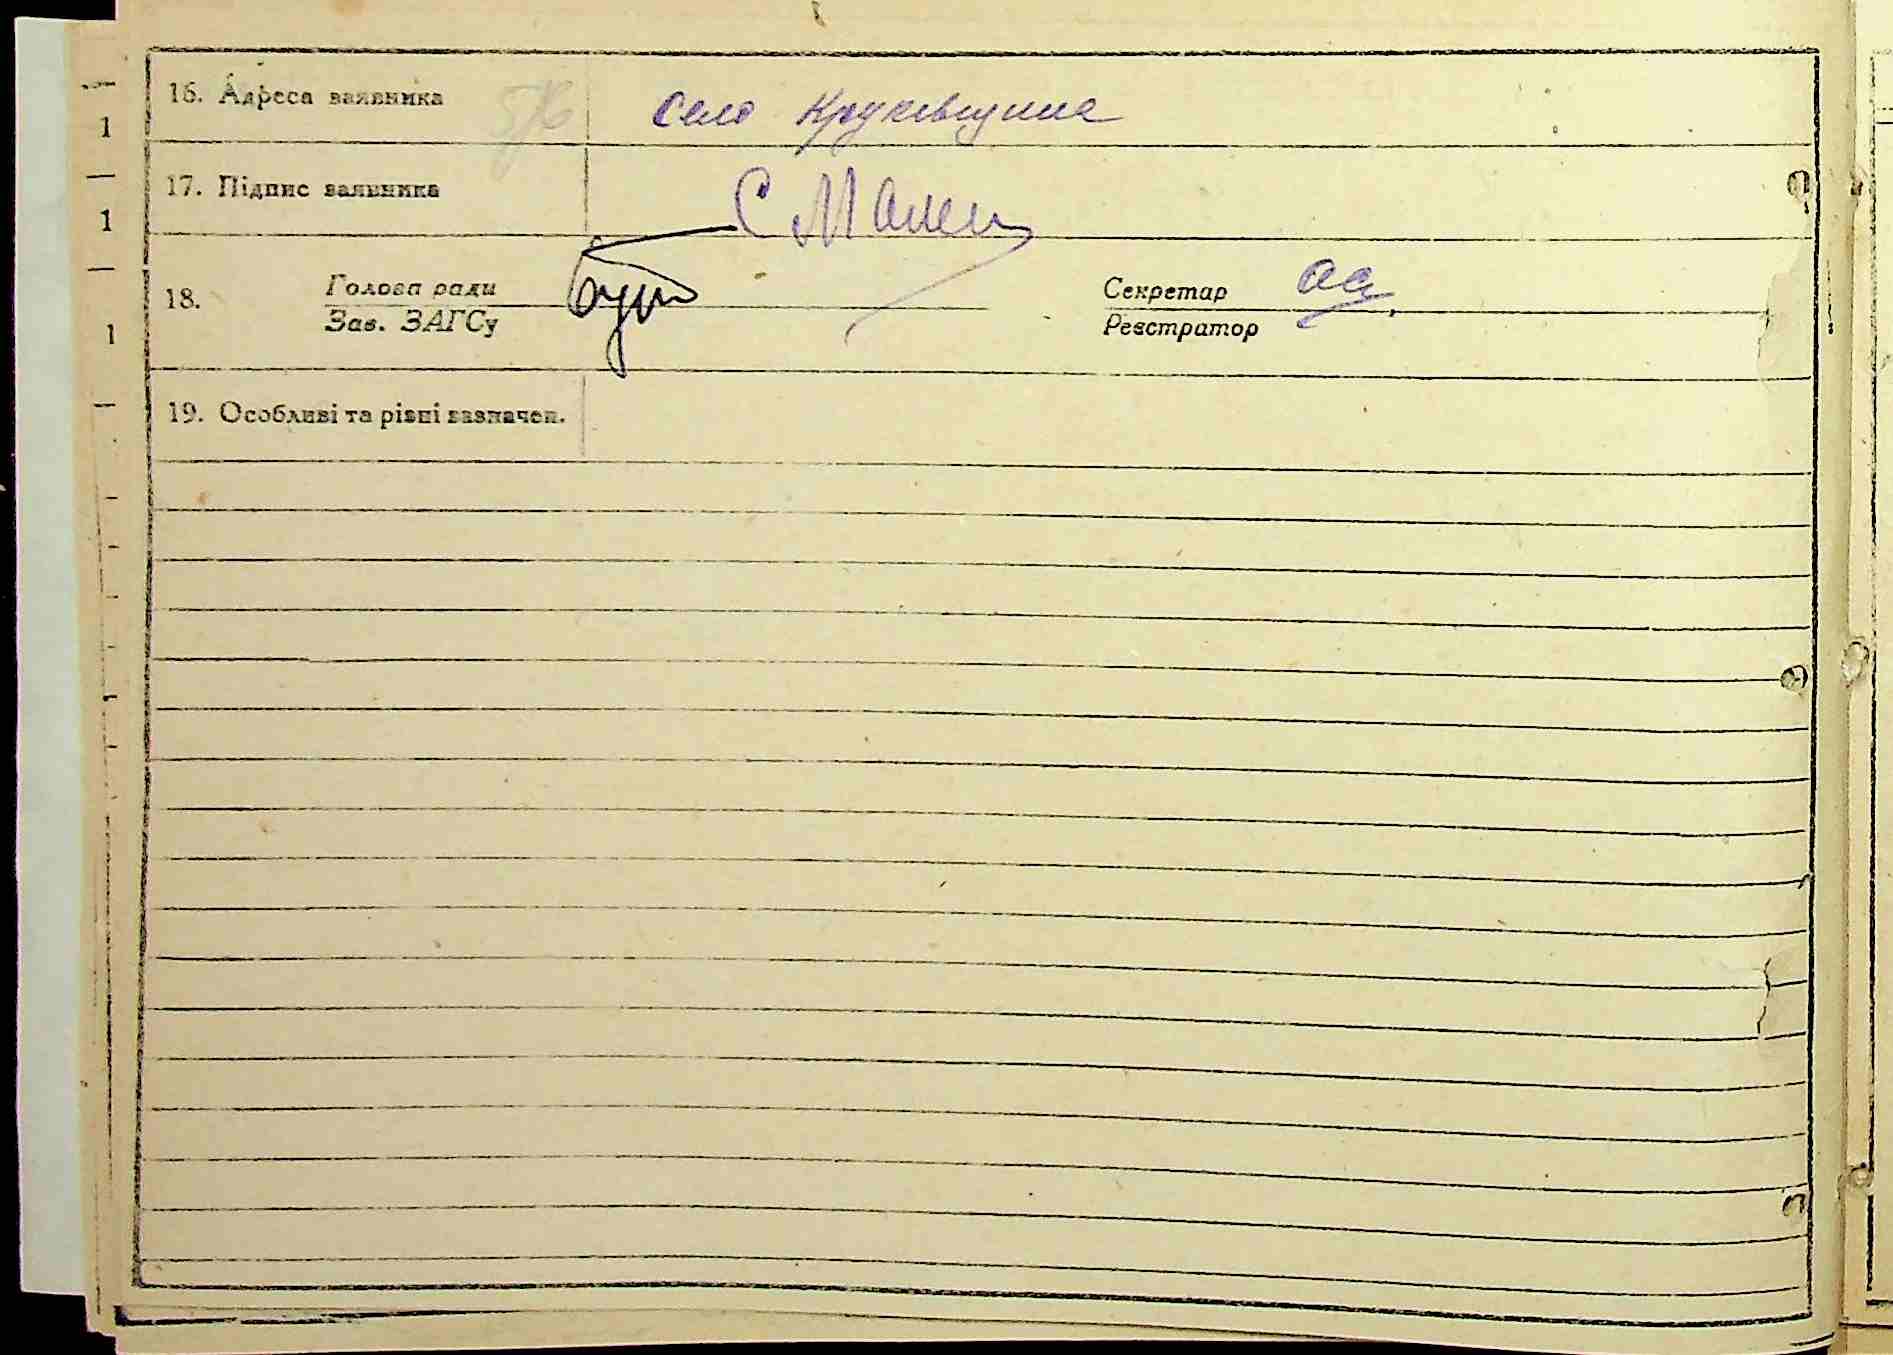 16. Адреса заявника село Круківщина
17. Підпис заявника С Мален
18. Голова ради Секретар
Зав. ЗАГСу Реєстратор
19. Особливі та різні зазначен.
1
1
1